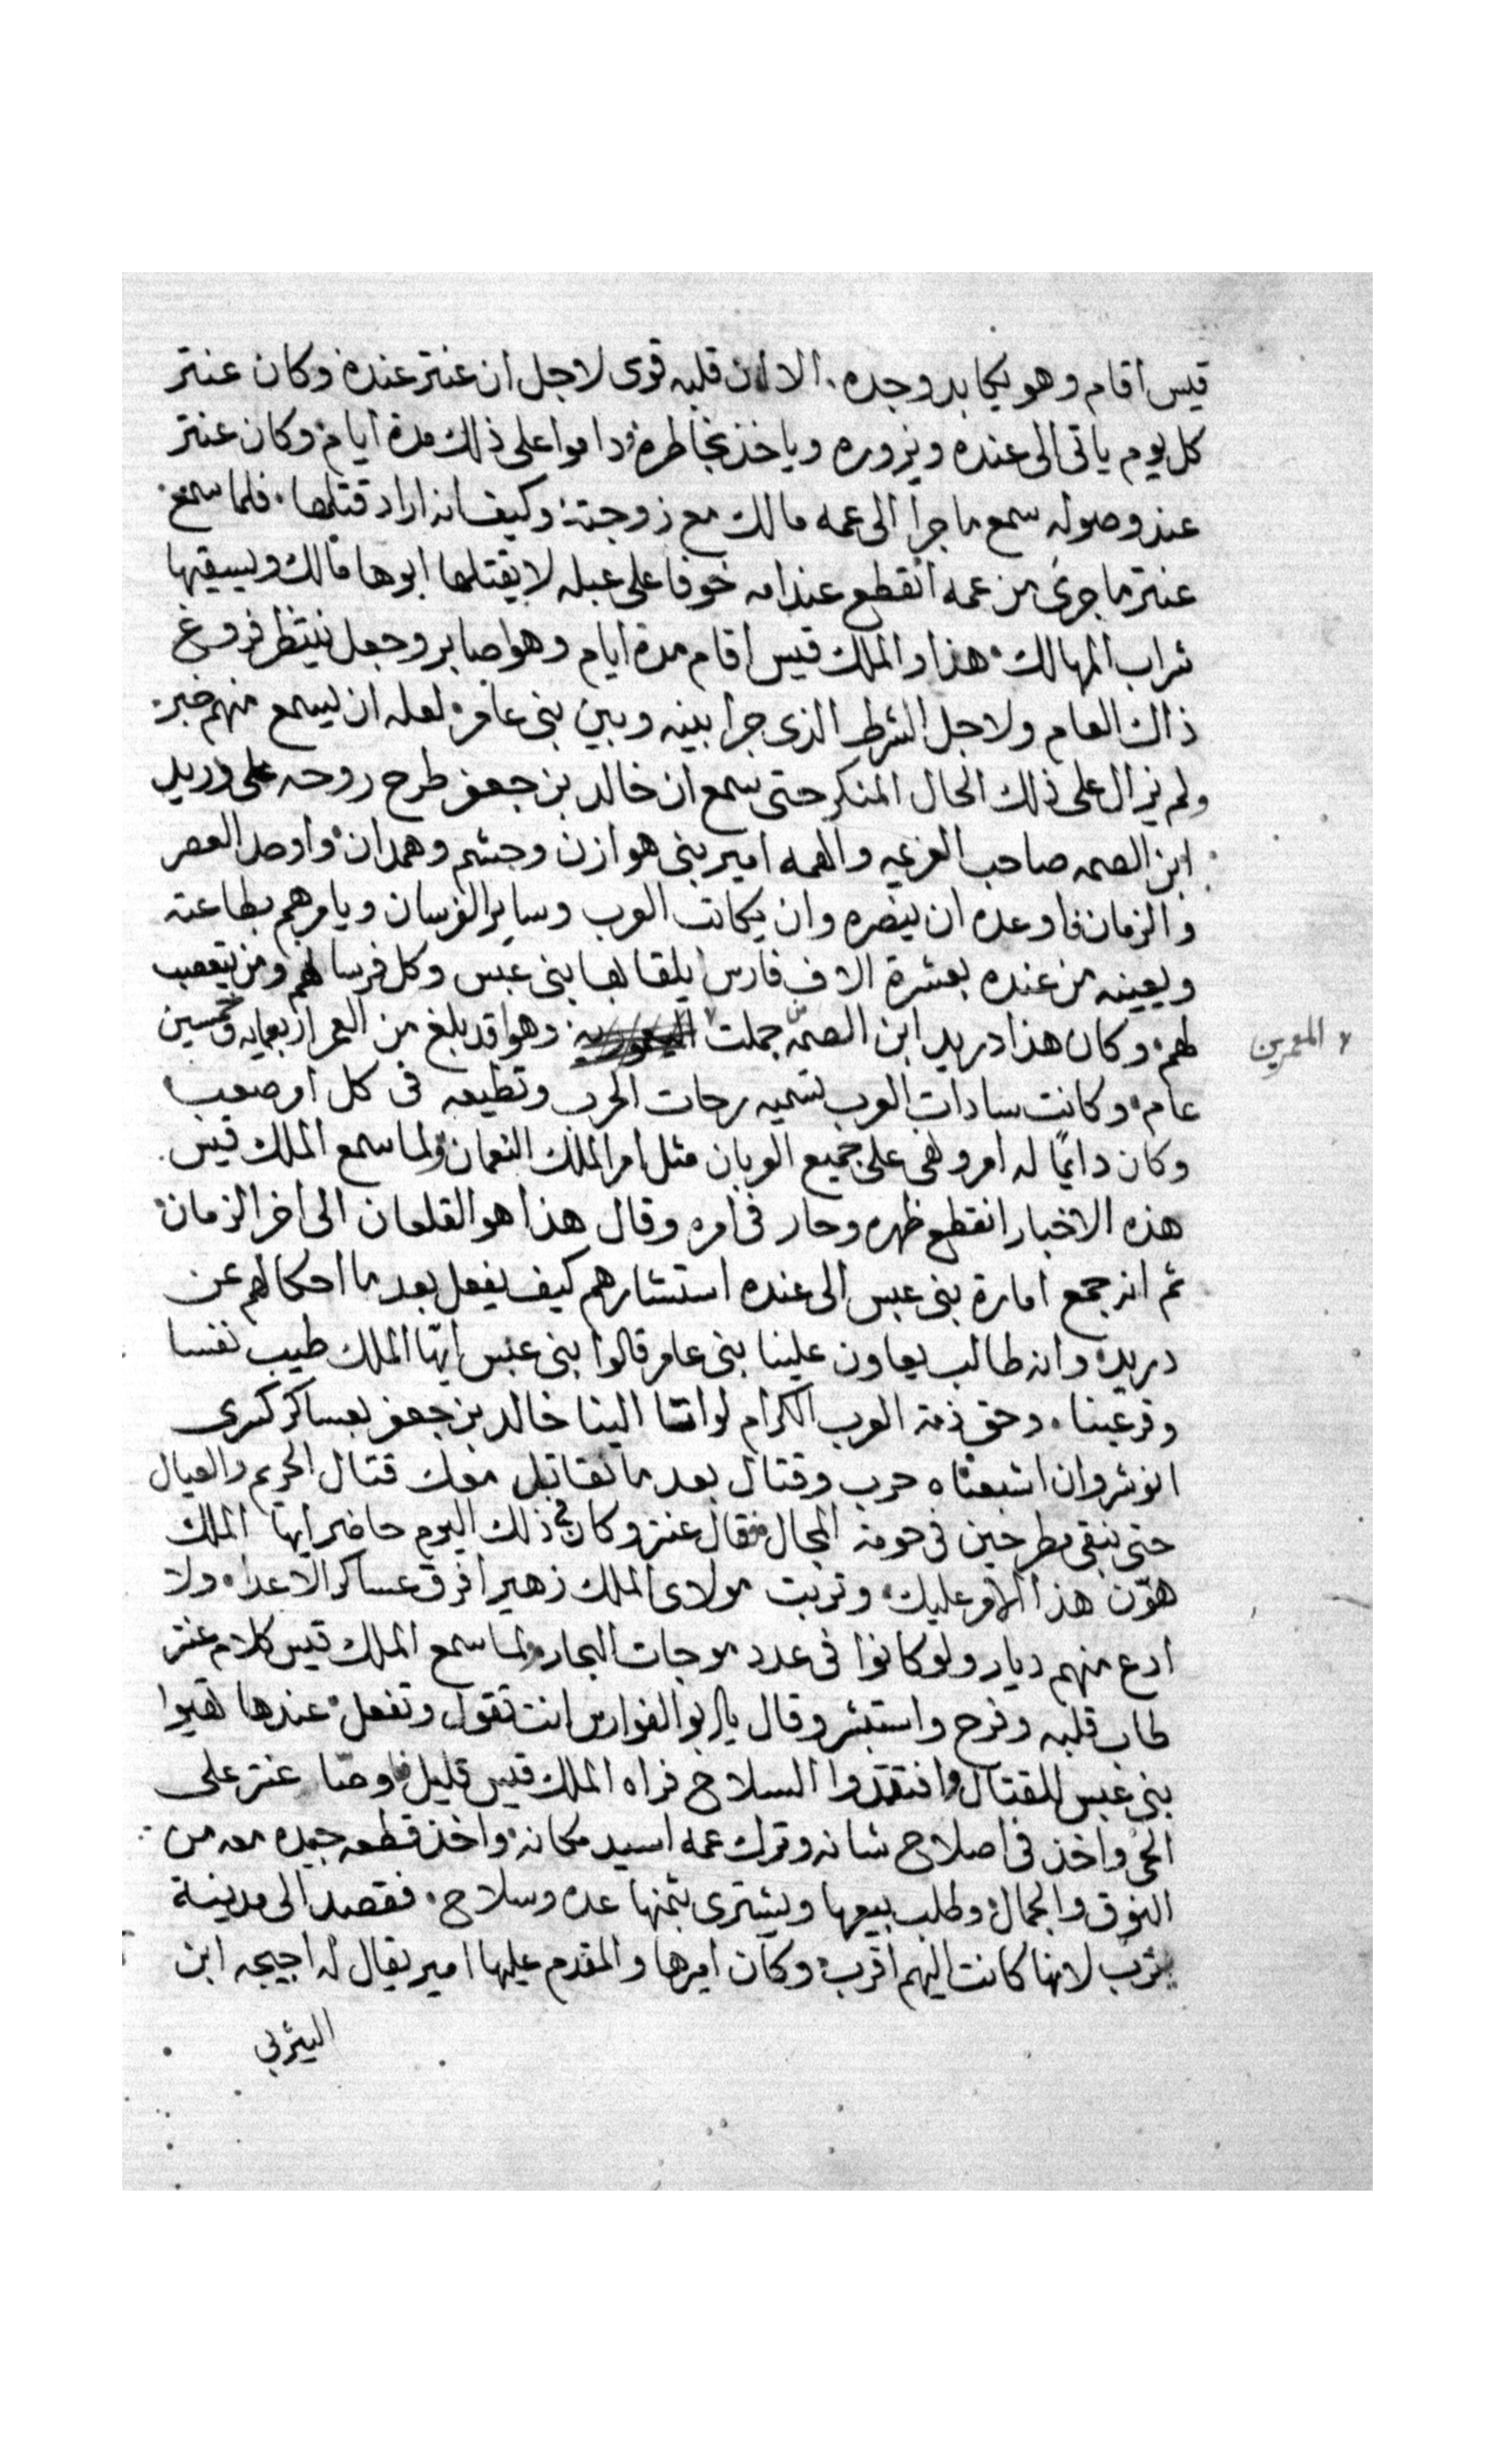 قيس اقام وهو يكابد وجده. الا ان قلبه قوى لاجل ان عنتر عنده وكان عنتر
كل يوم ياتى الى عنده ويزوره وياخذ بخاطره وداموا على ذلك مدة ايام وكان عنتر
عند وصوله سمع ما جرا الى عمه مالك مع زوجته وكيف انه اراد قتلها. فلما سمع
عنتر ما جرى من عمه انقطع عند امه خوفا على عبله لا يقتلها ابوها مالك ويسيقيها
شراب المهالك هذا والملك قيس اقام مدة ايام وهوا صابر وجعل ينتظر فروغ
ذاك العام ولاجل الشرط الذى جرا بينه وبين بنى عامر لعله ان يسمع منهم خبر
ولم يزال على ذلك الحال المنكر حتى سمع ان خالد بن جعفر طرح روحه على دريد
ابن الصمه صاحب العزيمه والهمه امير بنى هوازن وجشم وهمدان واوحد العصر
والزمان فاوعده ان ينصره وان يكاتب العرب وساير الفرسان ويامرهم بطاعته
ويعينه من عنده بعشرة الاف فارس يلقا بها بنى عبس وكل فرسانهم ومن يتعصب
لهم وكان هذا دريد ابن الصمّه جملت وهوا قد بلغ من العمر اربعمايه وخمسين
المعمرين
عام وكانت سادات العرب تسميه رحات الحرب وتطيعه فى كل امر صعب
وكان دايمًا له امر ونهى على جميع العربان مثل امر الملك النعمان ولما سمع الملك قيس
هذه الاخبار انقطع ظهره وحار فى امره وقال هذا هو القلعان الى اخر الزمان
ثم انه جمع امارة بنى عبس الى عنده استشارهم كيف يفعل بعد ما احكالهم عن
دريد وانه طالب يعاون علينا بنى عامر قالوا بنى عبس ايّها الملك طيب نفسا
وقر عينا. وحق ذمة العرب الكرام لو اتا الينا خالد بن جعفر بعساكر كسرى
انوشروان اشبعناه حرب وقتال بعد ما نقاتل معك قتال الحريم والعيال
حتى نبقى مطرحين فى حومة المجال فقال عنتر وكان فى ذلك اليوم حاضر ايها الملك
هوّن هذا الامر عليك وتربت مولاى الملك زهير افرق عساكر الاعداء ولا
ادع منهم ديار ولو كانوا فى عدد موجات البحار ولما سمع الملك قيس كلام عنتر
طاب قلبه وفرح واستبشر وقال يا ابو الفوارس انت تقول وتفعل عندها تهيوا
بنى عبس للقتال وافتقدوا السلاح فراه الملك قيس قليل فاوصّا عنتر على
الحى واخذ فى اصلاح شانه وترك عمه اسيد مكانه واخذ قطعه جيده معه من
النوق والجمال وطلب بيعها ويشترى بثمنها عده وسلاح. فقصد الى مدينة
يثرب لانها كانت اليهم اقرب وكان اميرها والمقدم عليها امير يقال له اجيحه ابن
اليثربى